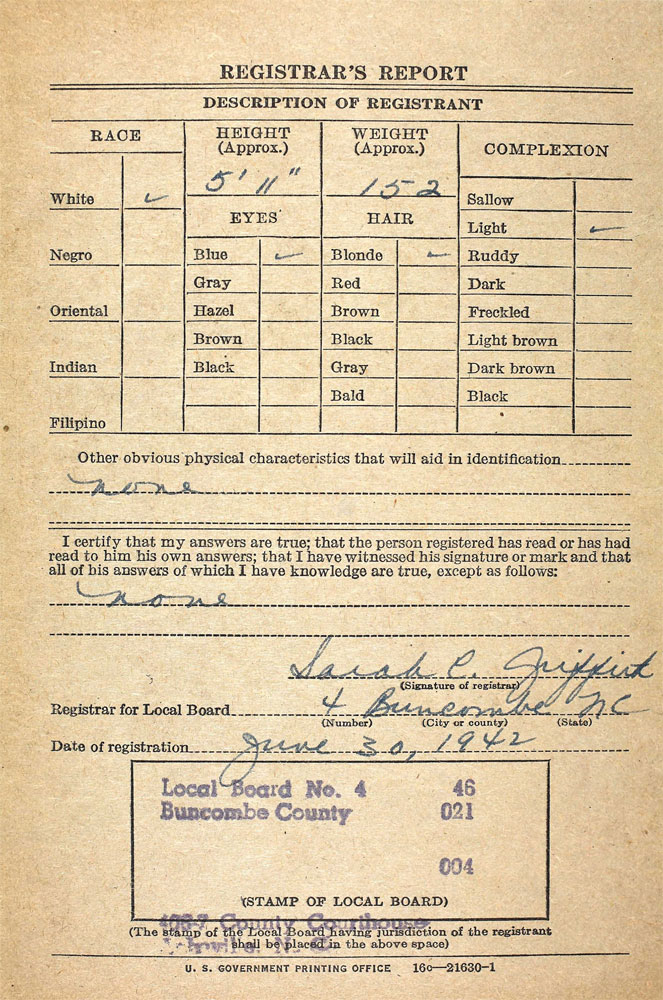 REGISTRAR'S REPORT
DESCRIPTION OF REGISTRANT
RACE HEIGHT (Approx.) WEIGHT (Approx.) COMPLEXION
5' 11" 152
White ✓ Sallow
EYES HAIR Light ✓
Negro Blue ✓ Blonde ✓ Ruddy
Gray Red Dark
Oriental Hazel Brown Freckled
Brown Black Light brown
Indian Black Gray Dark brown
Bald Black
Filipino
Other obvious physical characteristics that will aid in identification
none
I certify that my answers are true; that the person registered has read or has had
read to him his own answers; that I have witnessed his signature or mark and that
all of his answers of which I have knowledge are true, except as follows:
none
Sarah C. Griffith
(Signature of registrar)
Registrar for Local Board 4 Buncombe NC
(Number) (City or county) (State)
Date of registration June 30, 1942
Local Board No. 4 46
Buncombe County 021
004
(STAMP OF LOCAL BOARD)
County Courthouse
(The stamp of the Local Board having jurisdiction of the registrant
shall be placed in the above space)
U. S. GOVERNMENT PRINTING OFFICE 16c—21630-1